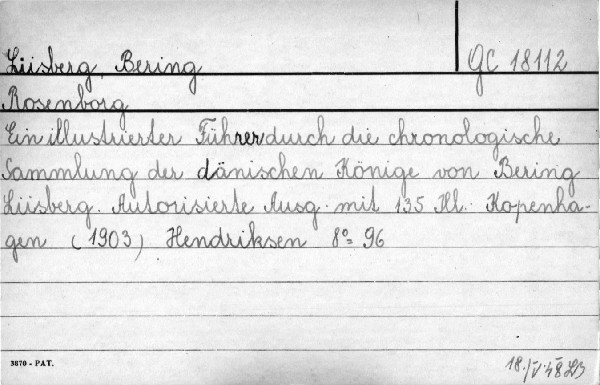 Liisberg, Bering GC 18112
Rosenborg
Ein illustrierter Führer durch die chronologische
Sammlung der dänischen Könige von Bering
Liisberg. Autorisierte Ausg. mit 135 Ill. Kopenha-
gen (1903) Hendriksen 8° 96
3870 - PAT. 18./V.48